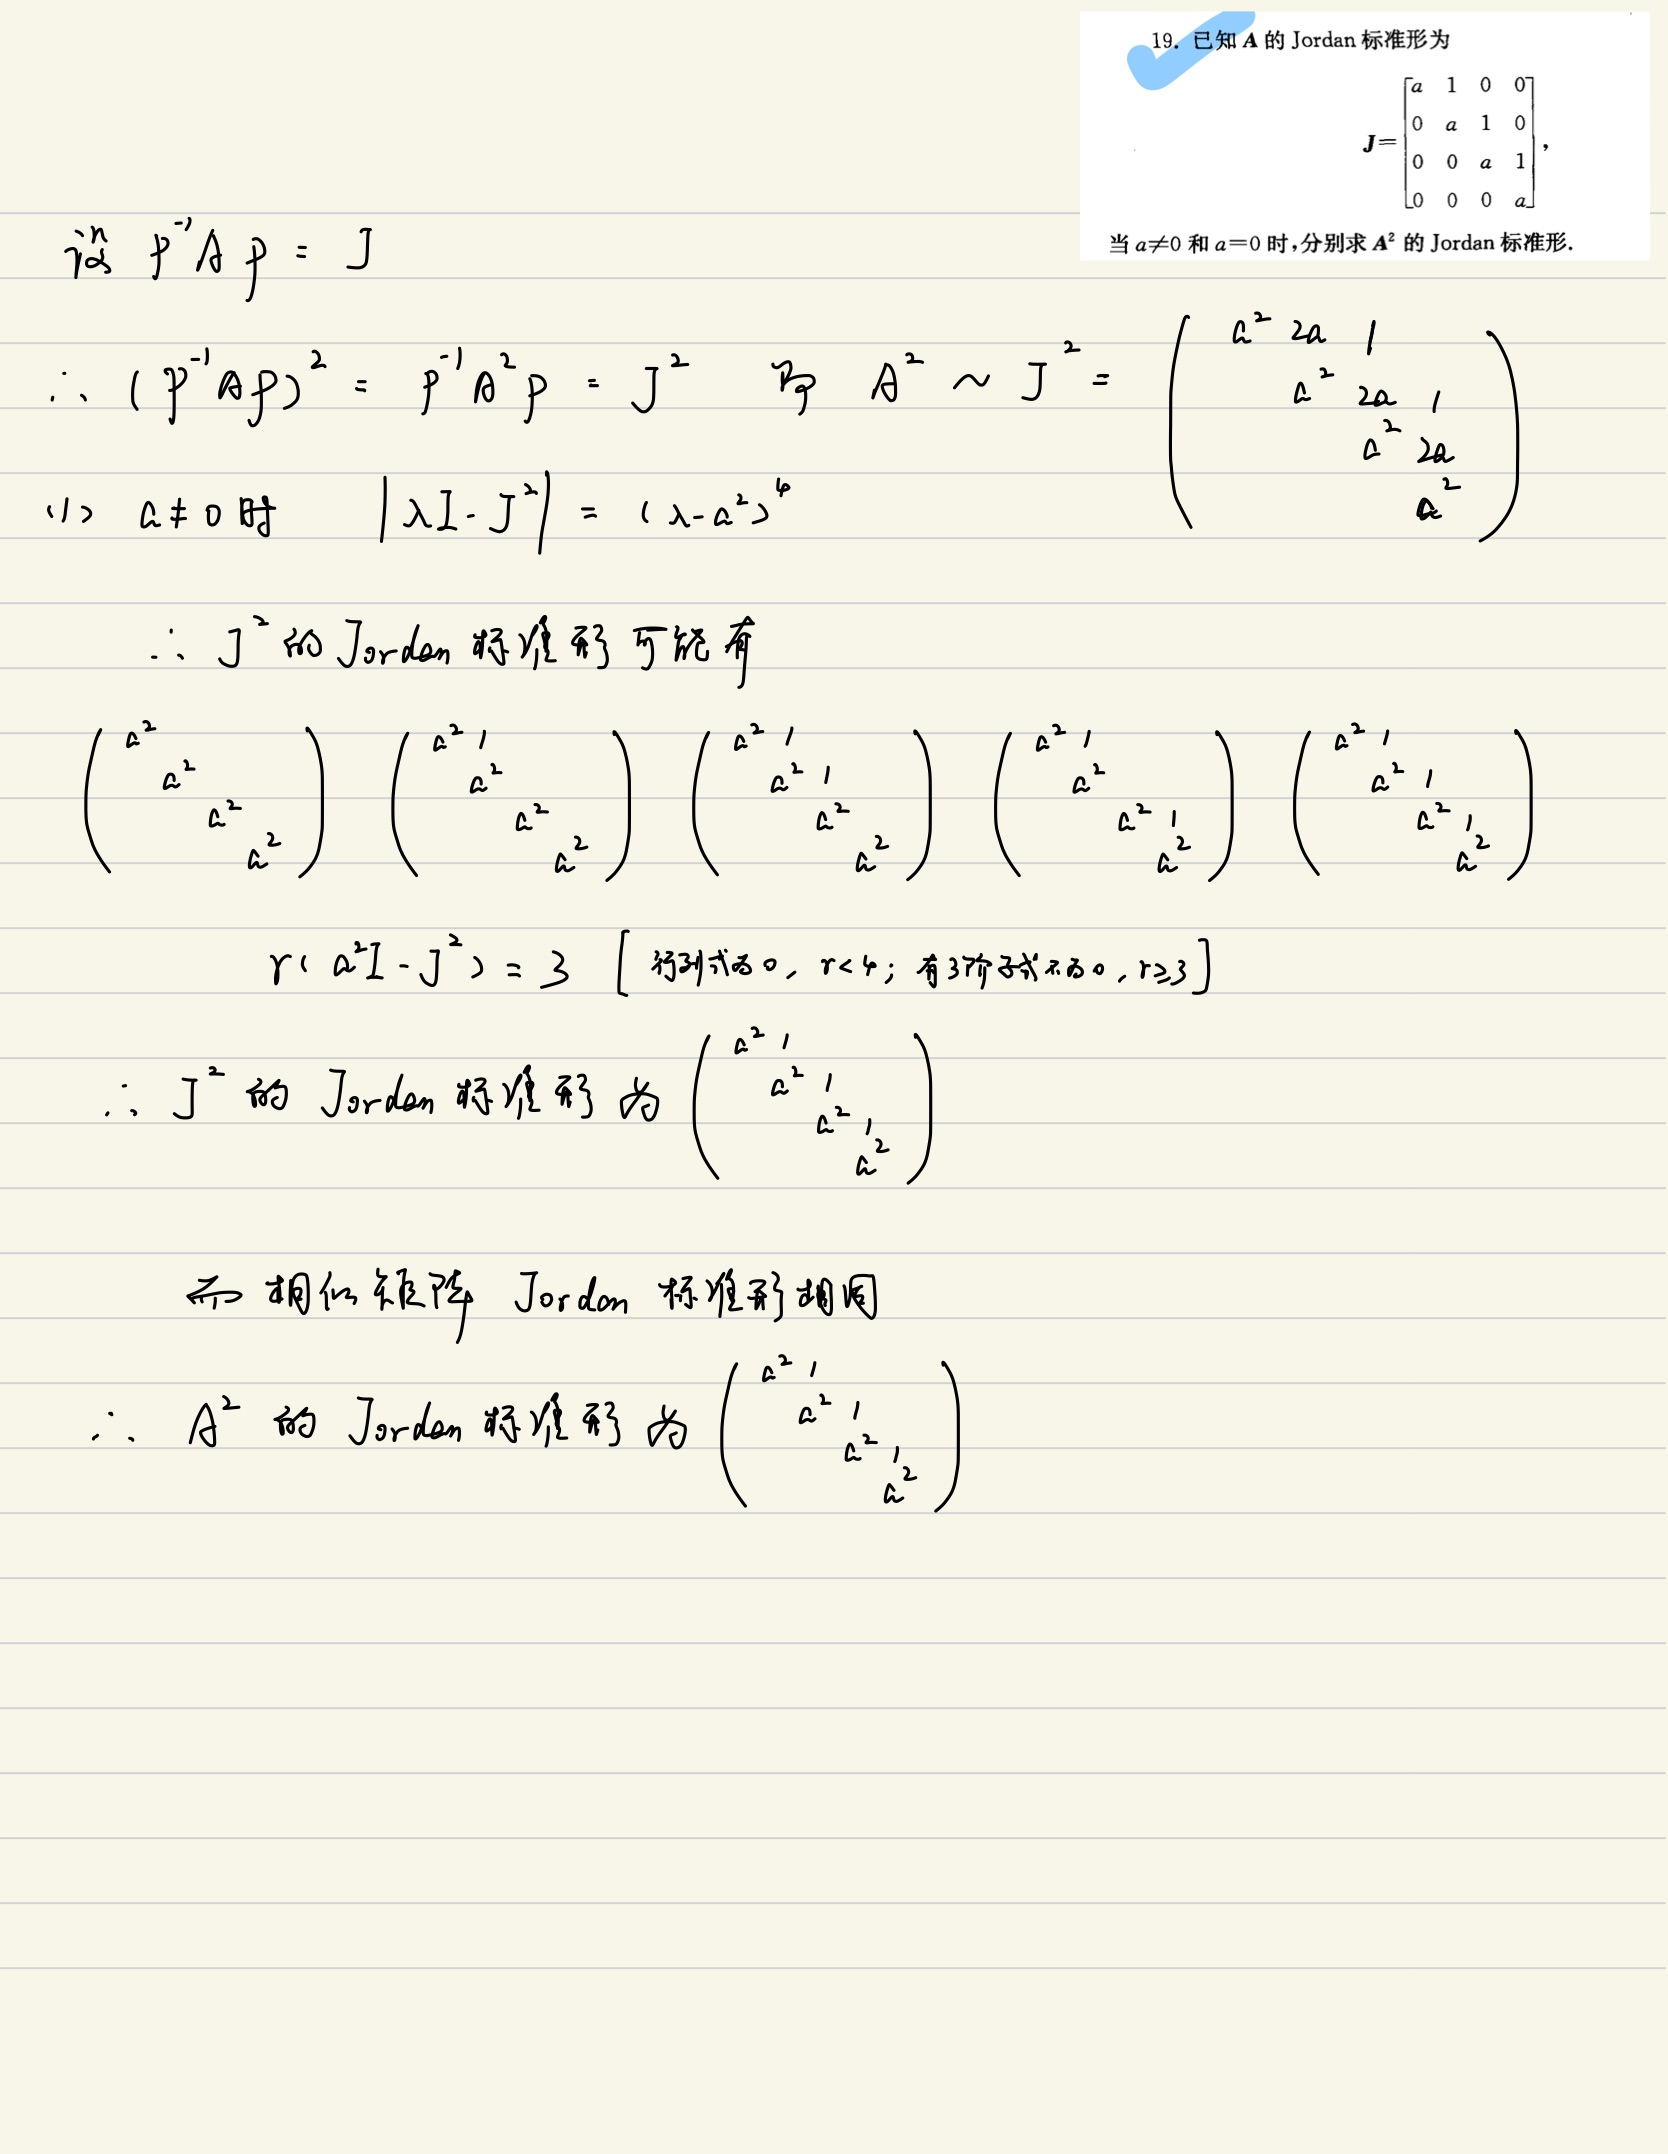 19. 已知 A 的 Jordan 标准形为
J=[a 1 0 0
0 a 1 0
0 0 a 1
0 0 0 a],
当 a≠0 和 a=0 时,分别求 A² 的 Jordan 标准形.
设 P⁻¹AP = J
∴ (P⁻¹AP)² = P⁻¹A²P = J² 即 A² ~ J² = (a² 2a 1
a² 2a 1
a² 2a
a²)
(1) a≠0时 |λI-J²| = (λ-a²)⁴
∴ J² 的 Jordan 标准形可能有
(a² a² a² a²) (a² 1 a² a² a²) (a² 1 a² 1 a² a²) (a² 1 a² a² 1 a²) (a² 1 a² 1 a² 1 a²)
r(a²I-J²) = 3 [行列式为0, r<4; 有3阶子式不为0, r≥3]
∴ J² 的 Jordan 标准形为 (a² 1
a² 1
a² 1
a²)
而相似矩阵 Jordan 标准形相同
∴ A² 的 Jordan 标准形为 (a² 1
a² 1
a² 1
a²)